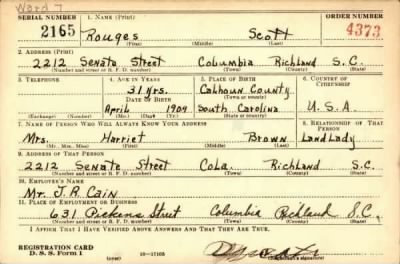 Ward 7
SERIAL NUMBER 1. NAME (Print) ORDER NUMBER
2165 Rouges Scott 4373
(First) (Middle) (Last)
2. ADDRESS (Print)
2212 Senate Street Columbia Richland S.C.
(Number and street or R. F. D. number) (Town) (County) (State)
3. TELEPHONE 4. AGE IN YEARS 5. PLACE OF BIRTH 6. COUNTRY OF CITIZENSHIP
31 yrs. Calhoun County
DATE OF BIRTH (Town or county)
April 1909 South Carolina U.S.A.
(Exchange) (Number) (Mo.) (Day) (Yr.) (State or country)
7. NAME OF PERSON WHO WILL ALWAYS KNOW YOUR ADDRESS 8. RELATIONSHIP OF THAT PERSON
Mrs. Harriet Brown Land Lady
(Mr., Mrs., Miss) (First) (Middle) (Last)
9. ADDRESS OF THAT PERSON
2212 Senate Street Cola. Richland S.C.
(Number and street or R. F. D. number) (Town) (County) (State)
10. EMPLOYER'S NAME
Mr. J. R. Cain
11. PLACE OF EMPLOYMENT OR BUSINESS
631 Pickens Street Columbia Richland S.C.
(Number and street or R. F. D. number) (Town) (County) (State)
I AFFIRM THAT I HAVE VERIFIED ABOVE ANSWERS AND THAT THEY ARE TRUE.
REGISTRATION CARD
D. S. S. Form 1 16—17105
(Registrant's signature)